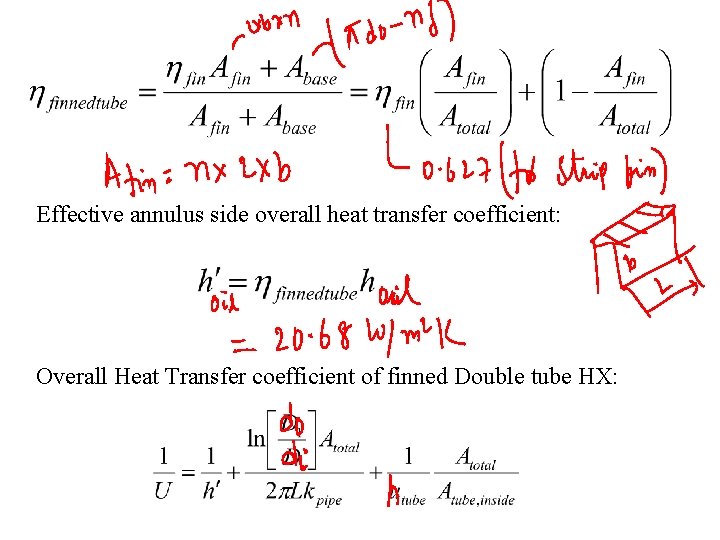 (πdo - nδ)
η finnedtube = (η fin A fin + A base) / (A fin + A base) = η fin (A fin / A total) + (1 − A fin / A total)
A fin = n x 2 x b
0.627 (for strip fin)
Effective annulus side overall heat transfer coefficient:
b
L
h′ oil = η finnedtube h oil
= 20.68 W/m²K
Overall Heat Transfer coefficient of finned Double tube HX:
1/U = 1/h′ + ln[do/di] A total / 2πLk pipe + 1/h tube A total / A tube,inside